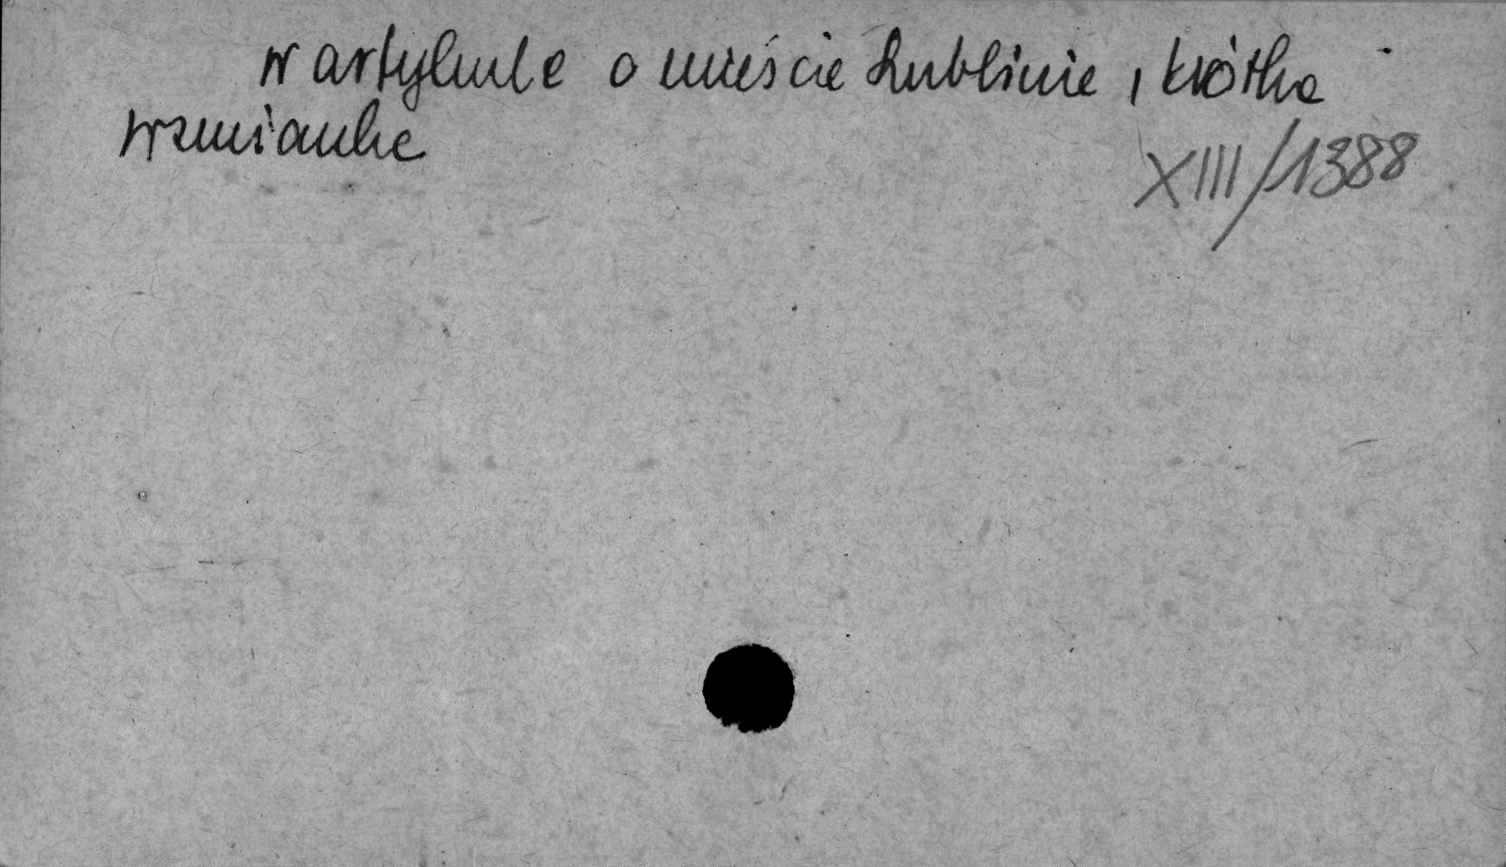 w artykule o mieście Lublinie, krótka
wzmianka
XIII/1388